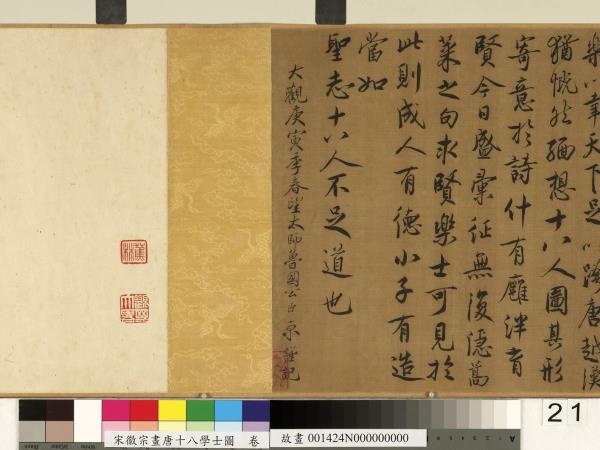 天下足以跨唐越漢
猶慨然緬想十八人圖其形
寄意於詩什有廱泮育
賢今日盛彙征無復隱蒿
萊之句求賢樂士可見於
此則成人有德小子有造
當如
聖志十八人不足道也
大觀庚寅季春望太師魯國公臣京謹記
蕉林
宋徽宗畫唐十八學士圖 卷
故畫 001424N000000000
21